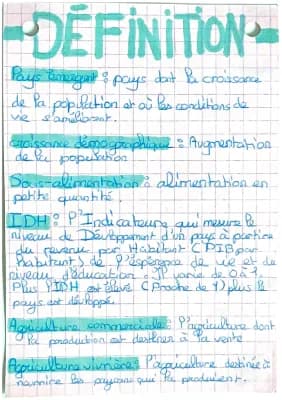 - DÉFINITION -
Pays Émergent : pays dont la croissance
de la population et où les conditions de
vie s'améliorent.
croissance démographique : Augmentation
de la population
Sous-alimentation : alimentation en
petite quantité.
IDH : l'Indicateur qui mesure le
niveau de Développement d'un pays à partir
du revenu par Habitant (PIB par
habitant) de l'espérance de vie et de
niveau d'éducation : Il varie de 0 à 1.
Plus l'IDH est élevé (Proche de 1) plus le
pays est développé.
Agriculture commerciale : l'agriculture dont
la production est destiner à la vente
Agriculture vivrière : l'agriculture destinée à
nourrire les paysans qui la produisent.